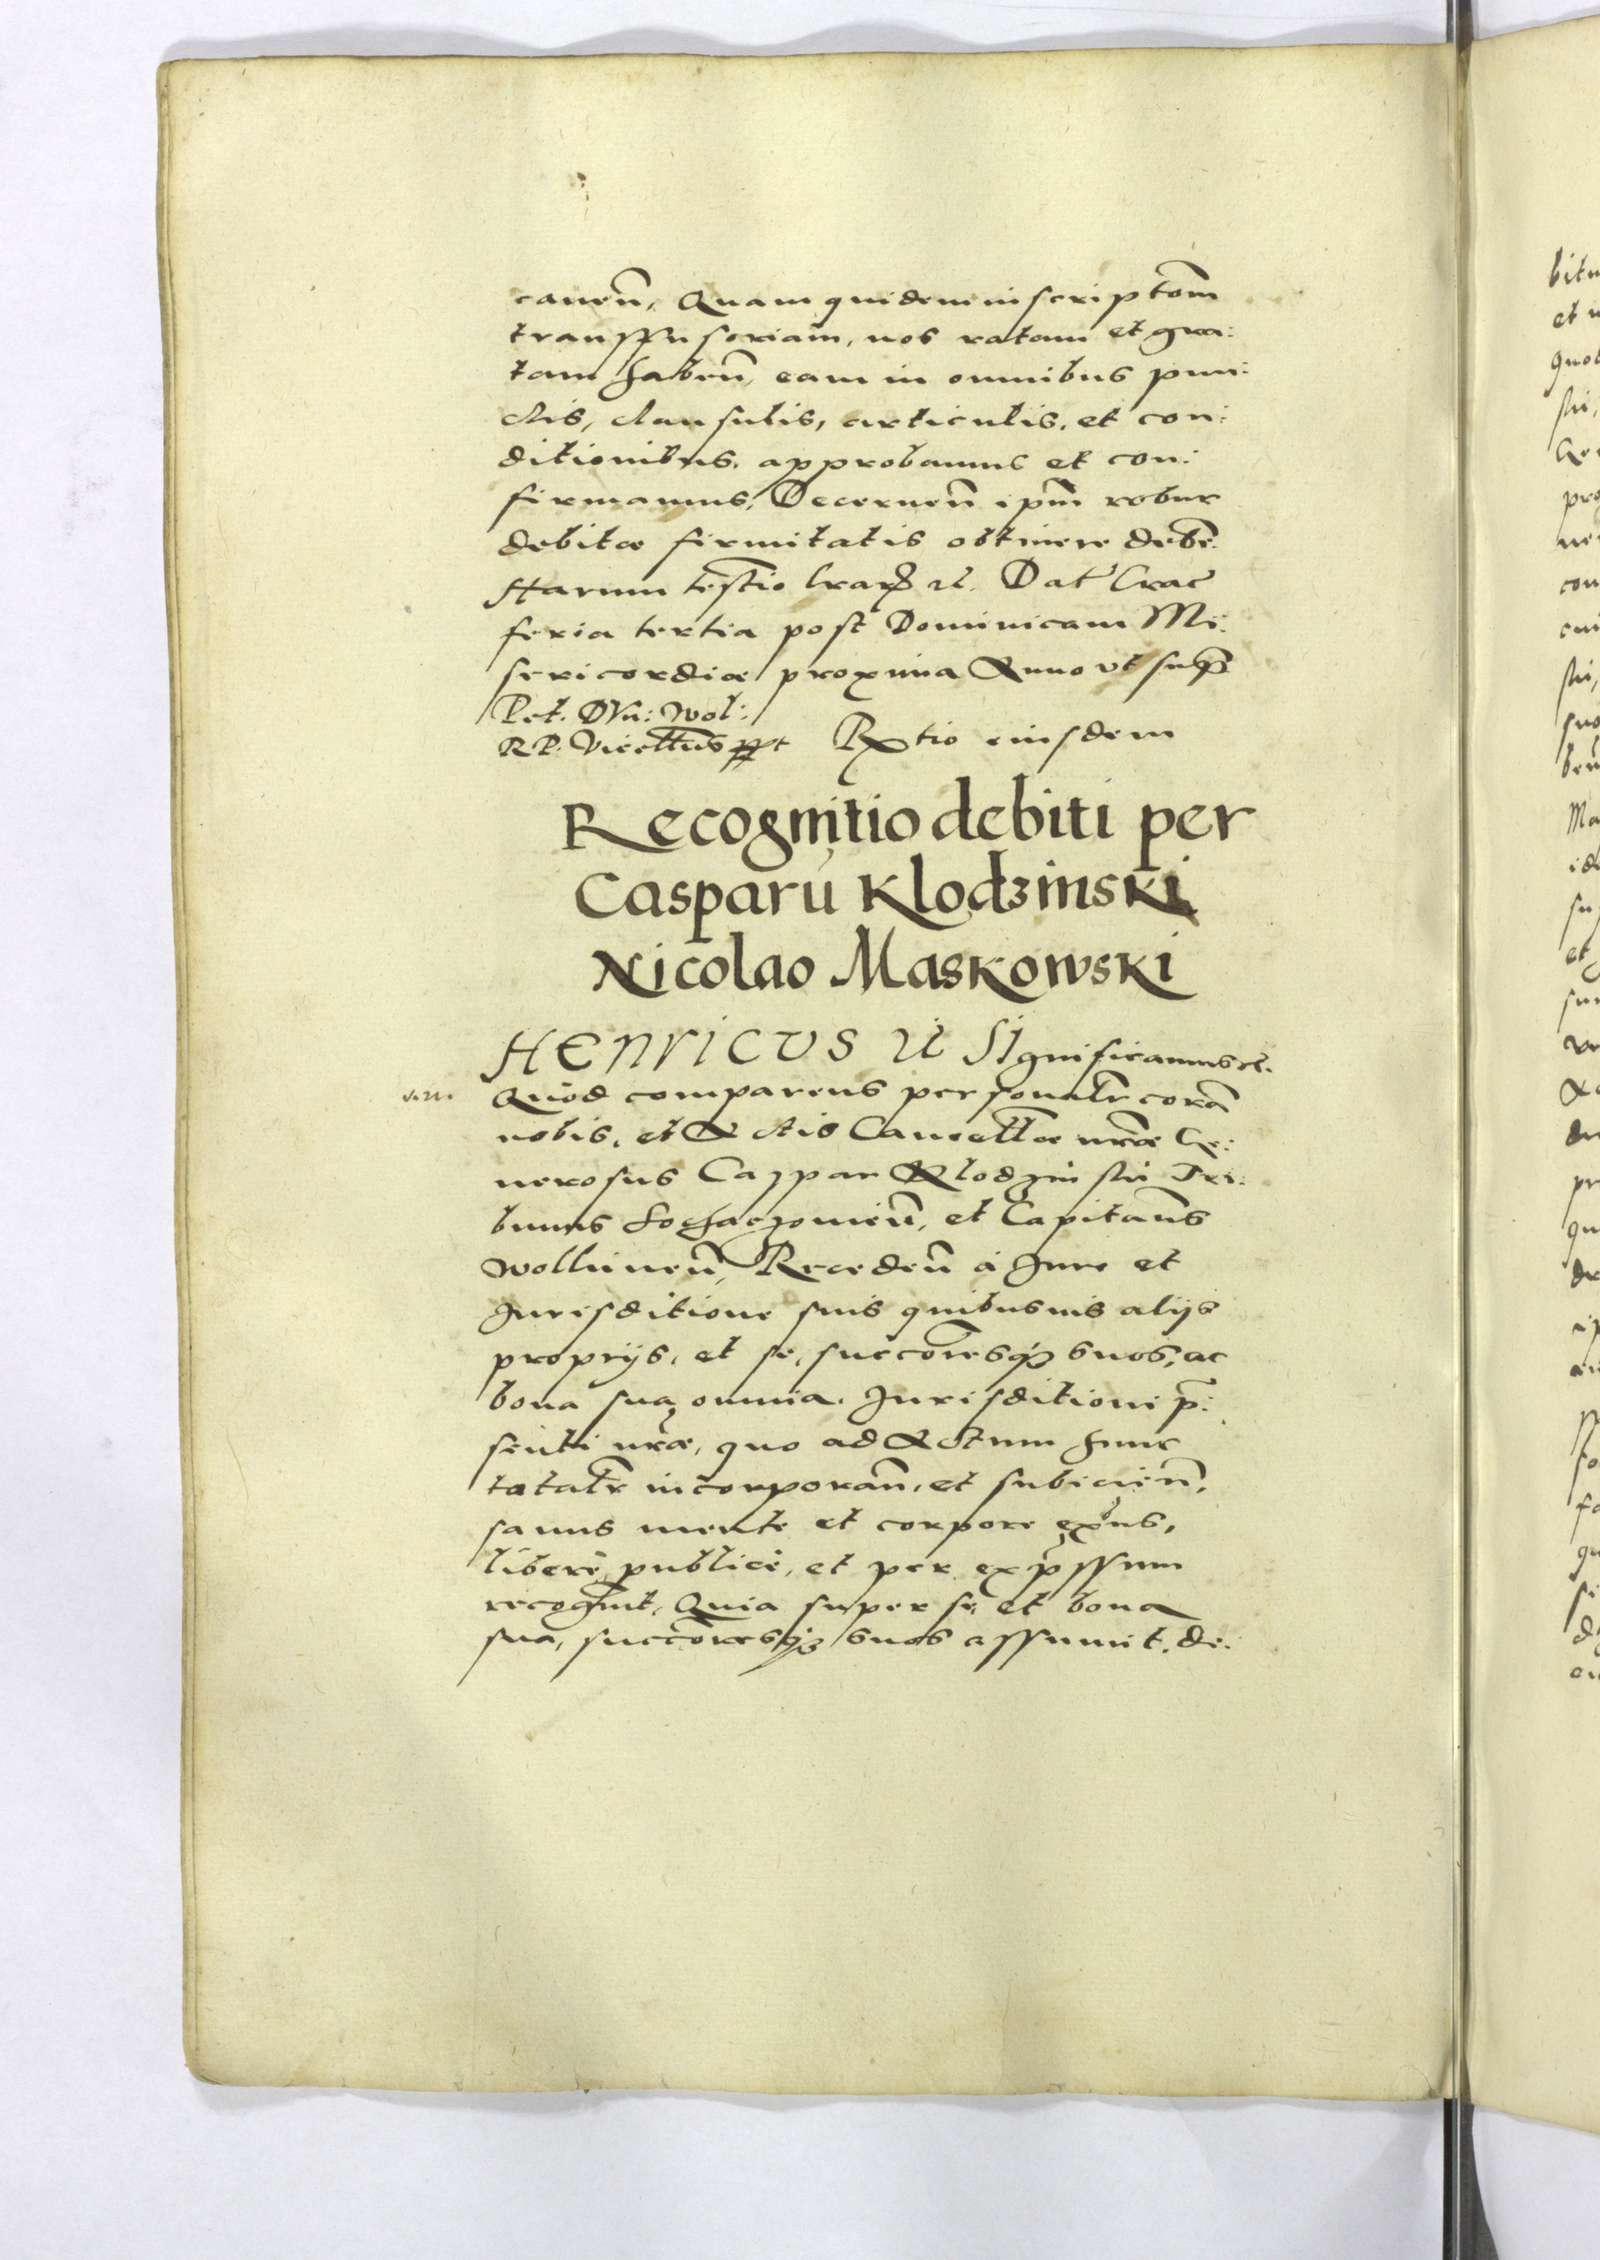 canen̄, Quam quidem inscriptōm
transfusoriam, nos ratam et gra:
tam haben̄, eam in omnibus pun:
ctis, clausulis, articulis, et con:
ditionibus, approbamus et con:
firmamus, Decernen̄ ip̄m robur
debitæ firmitatis obtinere debē.
Harum testīo lrarꝫ etc. Dat Crac
feria tertia post Dominicam Mi:
sericordiæ proxima Anno vt sup̄
Pet. Dun: Wol:
R P. Vicecllrius ppt Rtio eiusdem
Recognitio debiti per
Casparū Klodzinski
Nicolao Maskowski
HENRICVS etc Significamus etc.
Quod comparens personalr̄ corā
nobis, et Actis Cancellr̄æ nrǣ Ge:
nerosus Caspar Klodzinski Tri:
bunus Sochaczouien̄, et Capitan̄s
Wollinen̄, Receden̄ à Jure et
Jurisditione suis quibusuis alijs
proprijs, et se, succōresqꝫ suos, ac
bona sua omnia. Jurisditioni p̄:
senti nrǣ, quo ad Actum hunc
totalr̄ incorporan̄, et subicien̄,
sanus mente et corpore exn̄s,
liberè, publicè, et per exp̄ssum
recognit, Quia super se, et bona
sua, succōresqꝫ suos assumit, de: